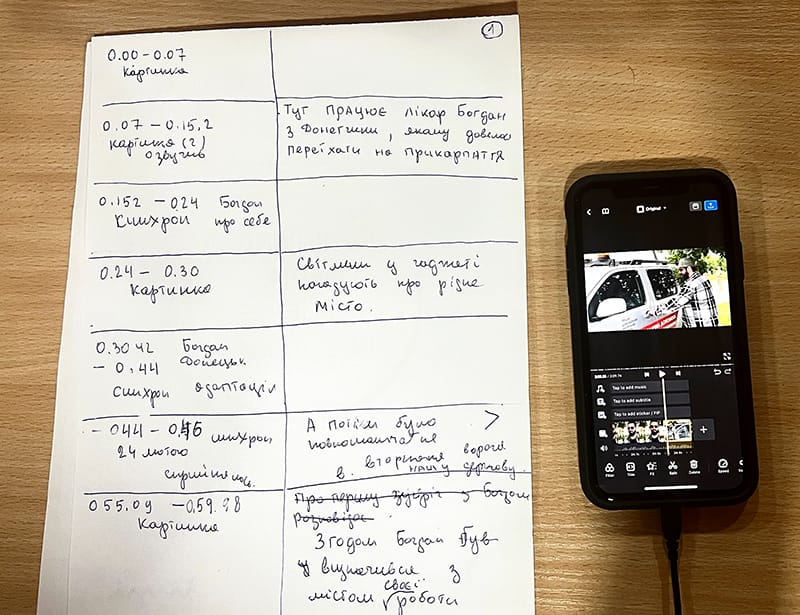 1
0.00 – 0.07
Картинка
0.07 – 0.15,2
картинка (2)
озвучив
Тут працює лікар Богдан
з Донеччини, якому довелось
переїхати на Прикарпаття
0.152 – 0.24 Богдан
Синхрон про себе
0.24 – 0.30
Картинка
Світлини у гаджеті
нагадують про рідне
місто.
0.3042 Богдан
– 0.44 Донецьк
синхрон адаптація
– 0.44 – 0.46 синхрон
24 лютого
А потім було
повномасштабне
вторгнення ворога
в нашу державу
055.09 – 0.59.98
Картинка
Про першу зустріч з Богданом
розповідає
Згодом Богдан був
визначився з
містом своєї роботи
Original
Tap to add music
Tap to add subtitle
Tap to add sticker / PIP
Filter
Trim
FX
Split
Delete
Speed